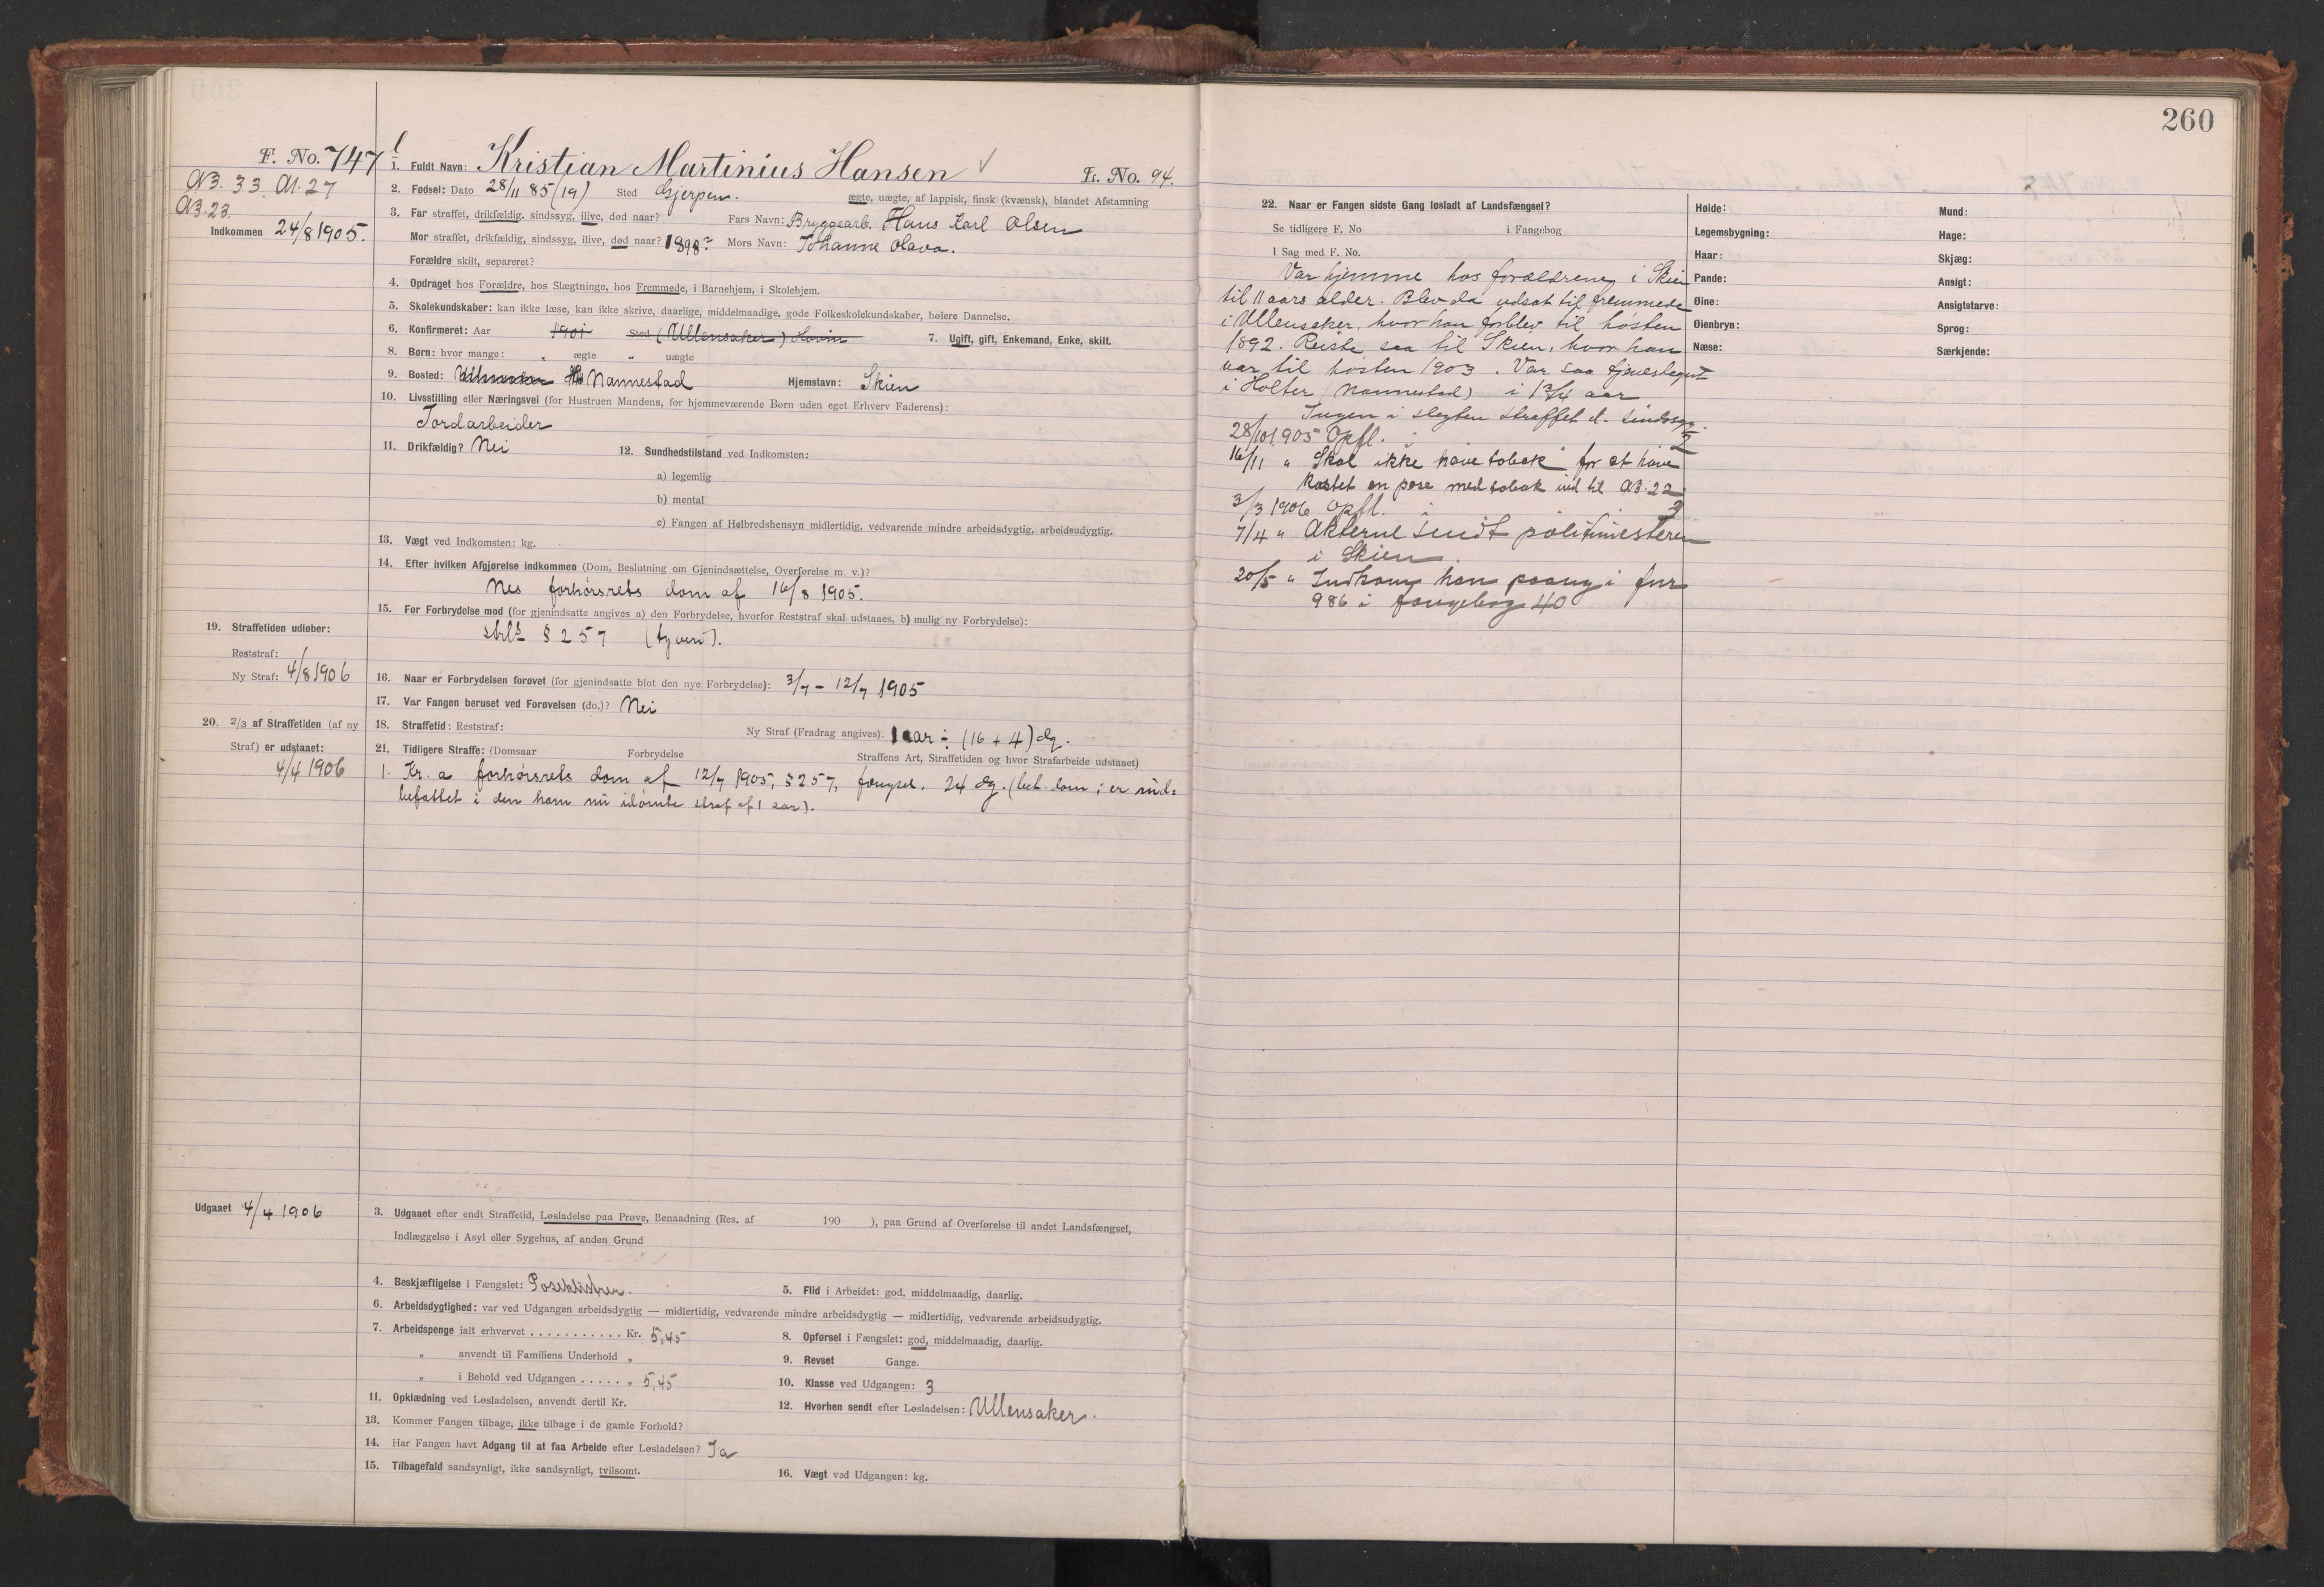 260
F. No. 747
A3. 33. A1. 27
A3. 23.
Indkommen 24/8 1905.
1. Fuldt Navn: Kristian Martinius Hansen
Fr. No. 94.
2. Fødsel: Dato 28/11 85 (19) Sted Gjerpen. ægte, uægte, af lappisk, finsk (kvænsk), blandet Afstamning
3. Far straffet, drikfældig, sindssyg, ilive, død naar? Fars Navn: Bryggearb. Hans Karl Olsen
Mor straffet, drikfældig, sindssyg, ilive, død naar? 1898? Mors Navn: Johanne Olava.
Forældre skilt, separeret?
4. Opdraget hos Forældre, hos Slægtninge, hos Fremmede, i Barnehjem, i Skolehjem.
5. Skolekundskaber: kan ikke læse, kan ikke skrive, daarlige, middelmaadige, gode Folkeskolekundskaber, høiere Dannelse.
6. Konfirmeret: Aar 1901 Sted (Ullensaker) Hovin 7. Ugift, gift, Enkemand, Enke, skilt.
8. Børn: hvor mange: " ægte " uægte
9. Bosted: Ullensaker Nannestad Hjemstavn: Skien
10. Livsstilling eller Næringsvei (for Hustruen Mandens, for hjemmeværende Børn uden eget Erhverv Faderens):
Jordarbeider
11. Drikfældig? Nei 12. Sundhedstilstand ved Indkomsten:
a) legemlig
b) mental
c) Fangen af Helbredshensyn midlertidig, vedvarende mindre arbeidsdygtig, arbeidsudygtig.
13. Vægt ved Indkomsten: kg.
14. Efter hvilken Afgjørelse indkommen (Dom, Beslutning om Gjenindsættelse, Overførelse m. v.)?
Nes forhørsrets dom af 16/8 1905.
15. For Forbrydelse mod (for gjenindsatte angives a) den Forbrydelse, hvorfor Reststraf skal udstaaes, b) mulig ny Forbrydelse):
strl § 257 (tyveri).
19. Straffetiden udløber:
Reststraf:
Ny Straf: 4/8 1906
16. Naar er Forbrydelsen forøvet (for gjenindsatte blot den nye Forbrydelse): 3/7 - 12/7 1905
17. Var Fangen beruset ved Forøvelsen (do.)? Nei
20. 2/3 af Straffetiden (af ny
Straf) er udstaaet:
4/4 1906
18. Straffetid: Reststraf: Ny Straf (Fradrag angives): 1 aar ÷ (16 + 4) dg.
21. Tidligere Straffe: (Domsaar Forbrydelse Straffens Art, Straffetiden og hvor Strafarbeide udstaaet)
1. Kr. a forhørsrets dom af 12/7 1905, § 257, fængsel. 24 dg. (bet. dom; er ind=
befattet i den ham nu idømte straf af 1 aar).
Udgaaet 4/4 1906
3. Udgaaet efter endt Straffetid, Løsladelse paa Prøve, Benaadning (Res. af 190 ), paa Grund af Overførelse til andet Landsfængsel,
Indlæggelse i Asyl eller Sygehus, af anden Grund
4. Beskjæftigelse i Fængslet: Poseklistrer.
5. Flid i Arbeidet: god, middelmaadig, daarlig.
6. Arbeidsdygtighed: var ved Udgangen arbeidsdygtig — midlertidig, vedvarende mindre arbeidsdygtig — midlertidig, vedvarende arbeidsudygtig.
7. Arbeidspenge ialt erhvervet . . . . . . . . . . . Kr. 5,45
8. Opførsel i Fængslet: god, middelmaadig, daarlig.
" anvendt til Familiens Underhold "
9. Revset Gange.
" i Behold ved Udgangen . . . . . " 5,45
10. Klasse ved Udgangen: 3
11. Opklædning ved Løsladelsen, anvendt dertil Kr.
12. Hvorhen sendt efter Løsladelsen: Ullensaker.
13. Kommer Fangen tilbage, ikke tilbage i de gamle Forhold?
14. Har Fangen havt Adgang til at faa Arbeide efter Løsladelsen? Ja
15. Tilbagefald sandsynligt, ikke sandsynligt, tvilsomt.
16. Vægt ved Udgangen: kg.
22. Naar er Fangen sidste Gang løsladt af Landsfængsel?
Se tidligere F. No i Fangebog
I Sag med F. No.
Var hjemme hos forældrene i Skien
til 11 aars alder. Blev da udsat til fremmede
i Ullensaker, hvor han forblev til høsten
1892. Reiste saa til Skien, hvor han
var til høsten 1903. Var saa tjenestegut
i Holter (Nannestad) i 1 3/4 aar
Ingen i slegten straffet el. sindssyg.
28/10 1905 Opfl. 2
16/11 " Skal ikke have tobak for at have
kastet en pose med tobak ind til A3. 22
3/3 1906 Opfl. 3
7/4 " Akterne sendt politimesteren
i Skien.
20/5 " Indkom han paany i fnr
986 i fangebog 40
Høide:
Legemsbygning:
Haar:
Pande:
Øine:
Øienbryn:
Næse:
Mund:
Hage:
Skjæg:
Ansigt:
Ansigtstarve:
Sprog:
Særkjende: